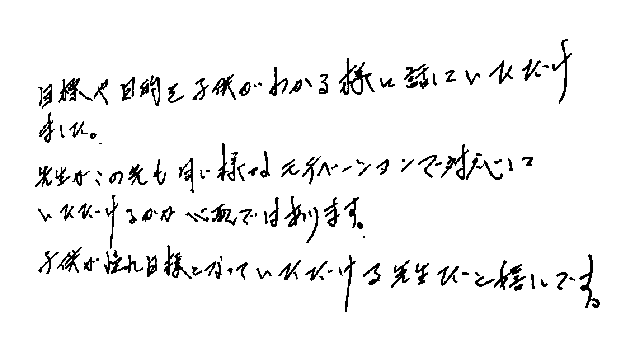 目標や目的を子供がわかる様に話していただけ
ました。
先生がこの先も同じ様なモチベーションで対応して
いただけるかが心配ではあります。
子供が憧れ目標となっていただける先生だと嬉しいです。